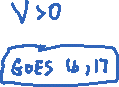 V>0
GOES 16,17